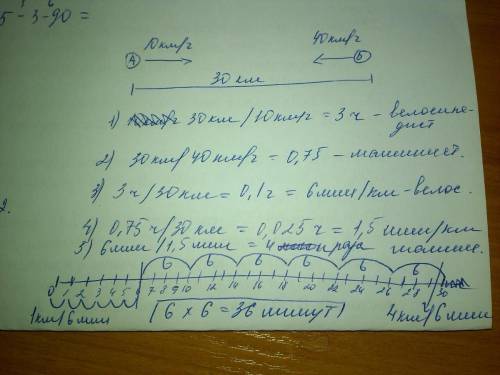 5-3-90=
10км/г 40км/г
А Б
30 км
1) 30км/10км/г = 3ч - велосипе-
дист
2) 30км/40км/г = 0,75 - машинист.
3) 3ч/30км = 0,1г = 6мин/км-велос.
2.
4) 0,75ч/30км = 0,025ч = 1,5мин/км
5) 6мин/1,5мин = 4 раза машин.
6 6 6 6 6 6
0 1 2 3 4 5 6 7 8 9 10 12 14 16 18 20 22 24 26 28 30
1км/6мин 6 x 6 = 36 минут 4км/6мин